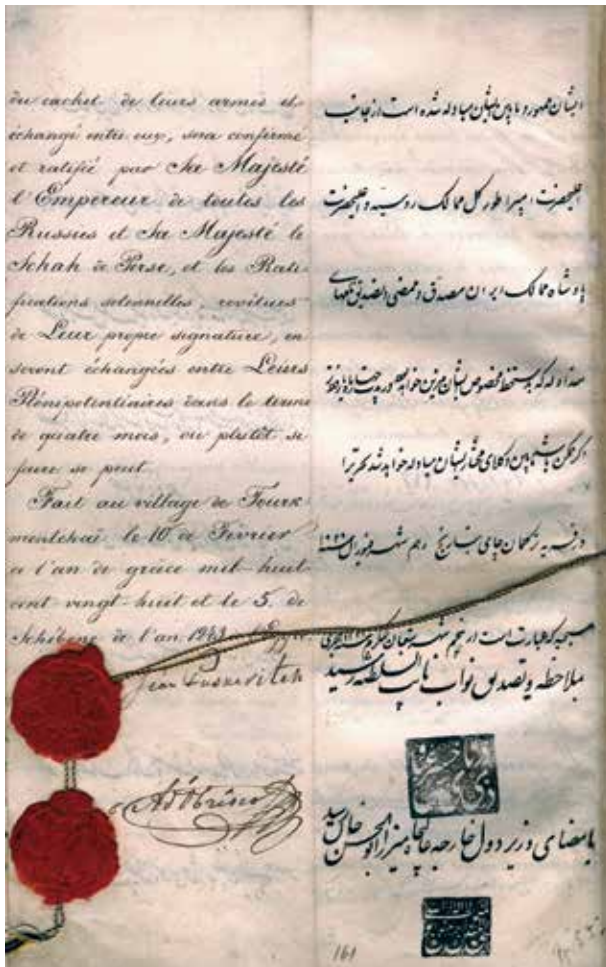 du cachet de leurs armes et
échangé entre eux, sera confirmé
et ratifié par Sa Majesté
l'Empereur de toutes les
Russies et Sa Majesté le
Schah de Perse, et les Rati-
fications solennelles, revêtues
de Leur propre signature, en
seront échangées entre Leurs
Plénipotentiaires dans le terme
de quatre mois, ou plustôt si
faire se peut.
Fait au village de Tourk-
mantchaï le 10 de Février
a l'an de grâce mil-huit
cent vingt-huit et le 5. de
Schébone de l'an 1243
Jean Paskevitch
ایشان ممهور و مابین ایشان مبادله شده است از جانب
اعلیحضرت امپراطور کل ممالک روسیه و اعلیحضرت
پادشاه ممالک ایران مصدق و ممضی و تصدیق نامهای
متداوله که بدستخط مخصوص ایشان مزین خواهد بود در مدت چهار ماه یا زودتر
اگر ممکن باشد مابین وکلای مختار ایشان مبادله خواهد شد تحریرا
در قریه ترکمان چای بتاریخ دهم شهر
مسیحیه که عبارت است از پنجم شهر شعبان
ملاحظه و تصدیق نواب نایب السلطنه رسید
بامضای وزیر دول خارجه عالیجاه میرزا ابوالحسن خان رسید
161